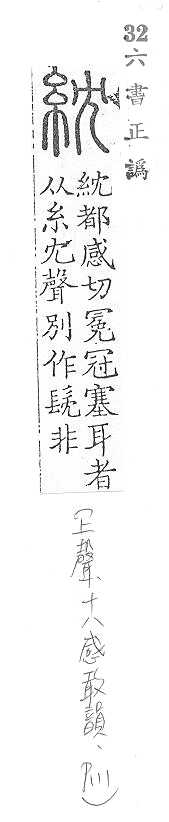 32 六書正譌
紞
紞都感切冕冠塞耳者
从糸冘聲別作髧非
(上聲、十八感敢韻、P111)